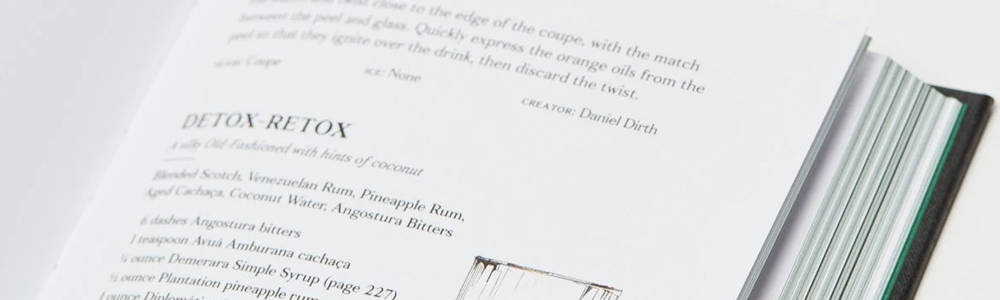 close to the edge of the coupe, with the match
between the peel and glass. Quickly express the orange oils from the
peel so that they ignite over the drink, then discard the twist.
Coupe ICE: None CREATOR: Daniel Dirth
DETOX-RETOX
A silky Old-Fashioned with hints of coconut
Blended Scotch, Venezuelan Rum, Pineapple Rum,
Aged Cachaça, Coconut Water, Angostura Bitters
6 dashes Angostura bitters
1 teaspoon Avuá Amburana cachaça
¼ ounce Demerara Simple Syrup (page 227)
½ ounce Plantation pineapple rum
1 ounce